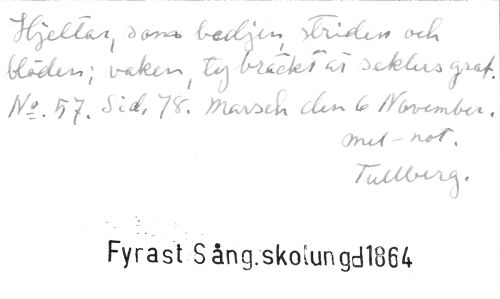 Hjeltar, som bedjen, striden och
blöden; vaken, ty bräckt är seklers graf.
No. 57. Sid. 78. Marsch den 6 November.
met-not.
Tullberg.
Fyrast Sång.skolungd1864